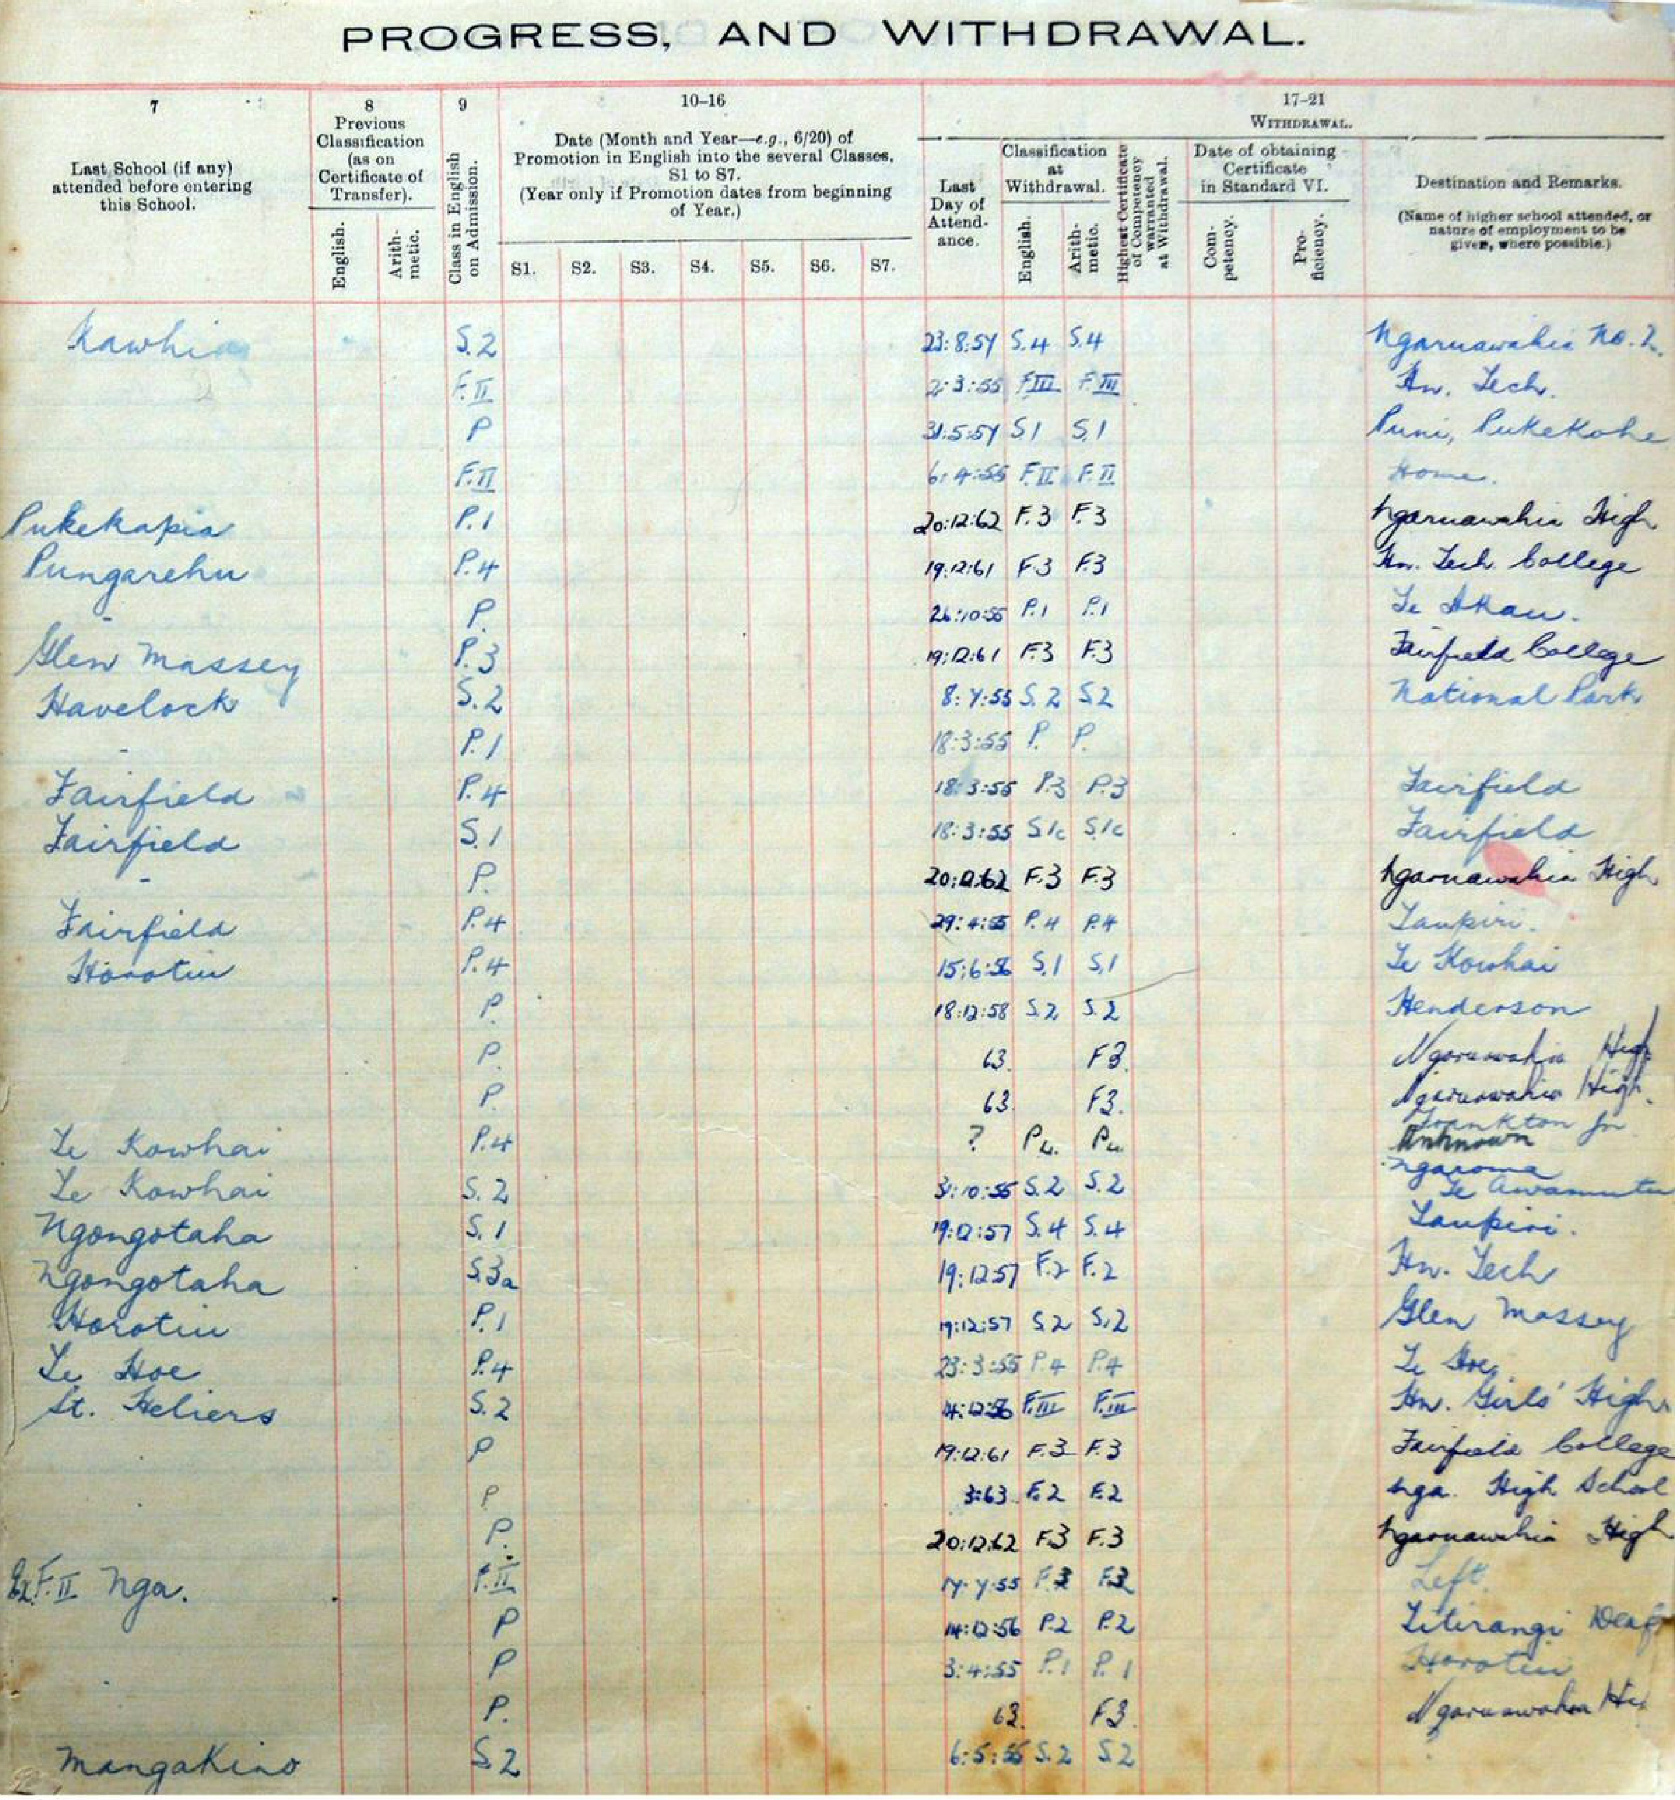 PROGRESS, AND WITHDRAWAL.
7 8 9 10–16 17–21
Last School (if any) attended before entering this School.
Previous Classification (as on Certificate of Transfer).
English. Arith-metic.
Class in English on Admission.
Date (Month and Year—e.g., 6/20) of Promotion in English into the several Classes, S1 to S7.
(Year only if Promotion dates from beginning of Year.)
S1. S2. S3. S4. S5. S6. S7.
WITHDRAWAL.
Last Day of Attend-ance.
Classification at Withdrawal.
English. Arith-metic.
Highest Certificate of Competency warranted at Withdrawal.
Date of obtaining Certificate in Standard VI.
Com-petency. Pro-ficiency.
Destination and Remarks.
(Name of higher school attended, or nature of employment to be given, where possible.)
Kawhia S.2 23:8:54 S.4 S.4 Ngaruawahia No. 2.
F.II 2:3:55 F.III F.III Hn. Tech.
P 31:5:54 S.1 S.1 Puni, Pukekohe
F.II 6:4:55 F.II F.II Home.
Pukekapia P.1 20:12:62 F.3 F.3 Ngaruawahia High
Pungarehu P.4 19:12:61 F.3 F.3 Hn. Tech College
P. 26:10:55 P.1 P.1 Te Akau.
Glen Massey P.3 19:12:61 F.3 F.3 Fairfield College
Havelock S.2 8:7:55 S.2 S2 National Park
- P.1 18:3:55 P. P.
Fairfield P.4 18:3:55 P3 P.3 Fairfield
Fairfield S.1 18:3:55 S1c S.1c Fairfield
- P. 20:12:62 F.3 F.3 Ngaruawahia High
Fairfield P.4 29:4:55 P.4 P.4 Taupiri.
Horotiu P.4 15:6:56 S.1 S.1 Te Kowhai
P. 18:12:58 S.2 S.2 Henderson
P. 63. F3. Ngaruawahia High
P. 63. F3. Ngaruawahia High.
Te Kowhai P.4 ? P4. P4 Frankton Jn
Unknown
Te Kowhai S.2 31:10:55 S.2 S.2 Ngaroma
Te Awamutu
Ngongotaha S.1 19:12:57 S.4 S.4 Taupiri.
Ngongotaha S.3a 19:12:57 F.2 F.2 Hn. Tech
Horotiu P.1 19:12:57 S.2 S.2 Glen Massey
Te Hoe P.4 23:3:55 P.4 P.4 Te Hoe
St. Heliers S.2 14:12:56 F.III F.III Hn. Girls' High.
P 19:12:61 F.3 F.3 Fairfield College
P 3:63. F.2 F.2 Nga. High School
P. 20:12:62 F.3 F.3 Ngaruawahia High
Ex F.II Nga. F.II 14:7:55 F.3 F.3 Left.
P 14:12:56 P.2 P.2 Titirangi Deaf
P 3:4:55 P.1 P.1 Horotiu
P. 63. F3. Ngaruawahia Hi
Mangakino S.2 6:5:55 S.2 S.2